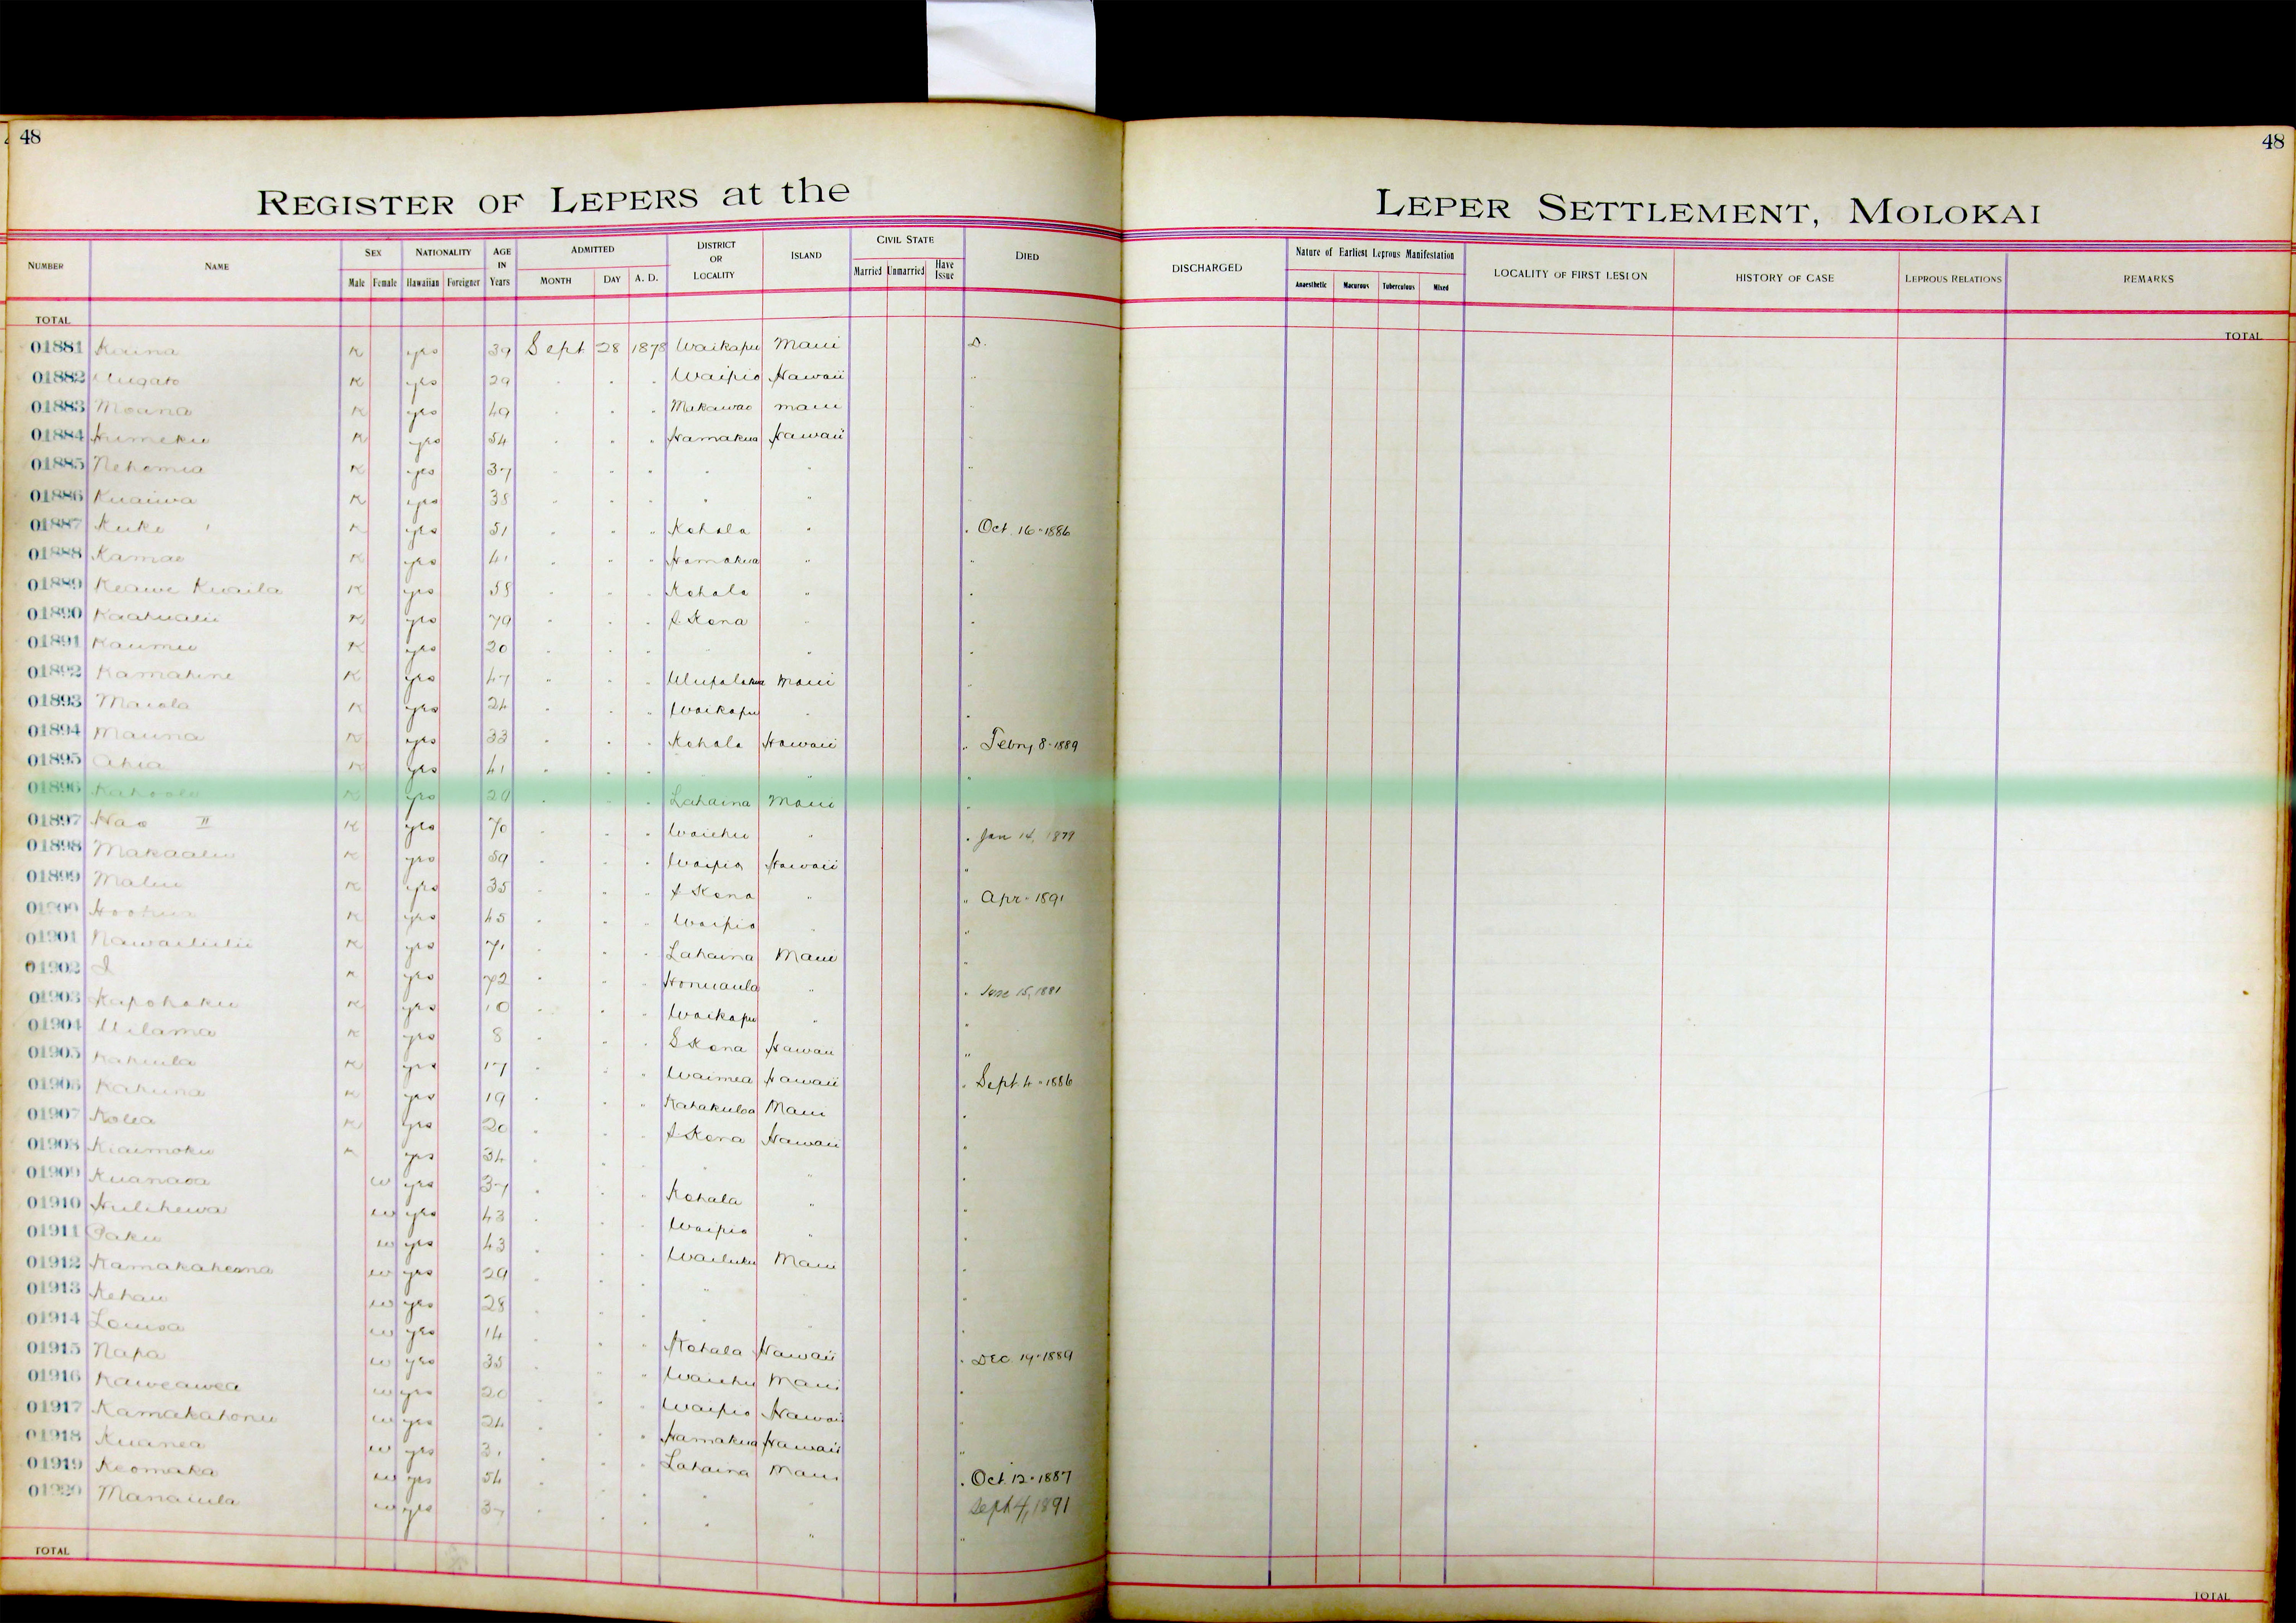 48
48
REGISTER OF LEPERS at the
LEPER SETTLEMENT, MOLOKAI
NUMBER NAME SEX NATIONALITY AGE IN Years ADMITTED DISTRICT OR LOCALITY ISLAND CIVIL STATE DIED
Male Female Hawaiian Foreigner MONTH DAY A. D. Married Unmarried Have Issue
DISCHARGED Nature of Earliest Leprous Manifestation LOCALITY OF FIRST LESION HISTORY OF CASE LEPROUS RELATIONS REMARKS
Anaesthetic Macurous Tuberculous Mixed
TOTAL
TOTAL
01881 K yes 39 Sept 28 1878 Waikapu Maui D.
01882 K yes 29 " " " Waipio Hawaii "
01883 Moana K yes 49 " " " Makawao Maui "
01884 Humeku K yes 54 " " " Hamakua Hawaii "
01885 Nehemia K yes 37 " " " " " "
01886 Kuaiwa K yes 38 " " " " " "
01887 Kuke K yes 51 " " " Kohala " " Oct. 16-1886
01888 Kamae K yes 41 " " " Hamakua " "
01889 Keawe Kuaila K yes 58 " " " Kohala " "
01890 Kaahualii K yes 79 " " " Kona " "
01891 Kaumu K yes 20 " " " " " "
01892 Kamahine K yes 47 " " " Ulupalakua Maui "
01893 Maiola K yes 24 " " " Waikapu " "
01894 Mauna K yes 33 " " " Kohala Hawaii " Febry 8-1889
01895 Ahia K yes 41 " " " " "
01896 Kahoole K yes 29 " " " Lahaina Maui "
01897 Nao II K yes 70 " " " Waiehu " " Jan 14, 1879
01898 Makaalu K yes 59 " " " Waipio Hawaii "
01899 Malu K yes 35 " " " Kona " " Apr-1891
01900 Hoohua K yes 45 " " " Waipio "
01901 Nawailiilii K yes 71 " " " Lahaina Maui "
01902 I K yes 72 " " " Honuaula " " June 15, 1881
01903 Kapohaku K yes 10 " " " Waikapu " "
01904 Uilama K yes 8 " " " S Kona Hawaii "
01905 Kahiula K yes 17 " " " Waimea Hawaii " Sept. 4-1886
01906 Kahuna K yes 19 " " " Kahakuloa Maui "
01907 Kolea K yes 20 " " " Kona Hawaii "
01908 Kiaimoku K yes 34 " " " " " "
01909 Kuanaoa w yes 37 " " " Kohala " "
01910 Hulihewa w yes 43 " " " Waipio " "
01911 Paku w yes 43 " " " Wailuku Maui "
01912 Kamakaheana w yes 29 " " " " "
01913 Kehau w yes 28 " " " " "
01914 Louisa w yes 14 " " " Kohala Hawaii " Dec. 19-1889
01915 Napa w yes 35 " " " Waiehu Maui "
01916 Kaweawea w yes 20 " " " Waipio Hawaii "
01917 Kamakahonu w yes 24 " " " Hamakua Hawaii "
01918 Kuanea w yes 31 " " " Lahaina Maui " Oct 12-1887
01919 Keomaka w yes 54 " " " " " Sept 4, 1891
01920 Manaiula w yes 37 " " " " "
TOTAL
TOTAL